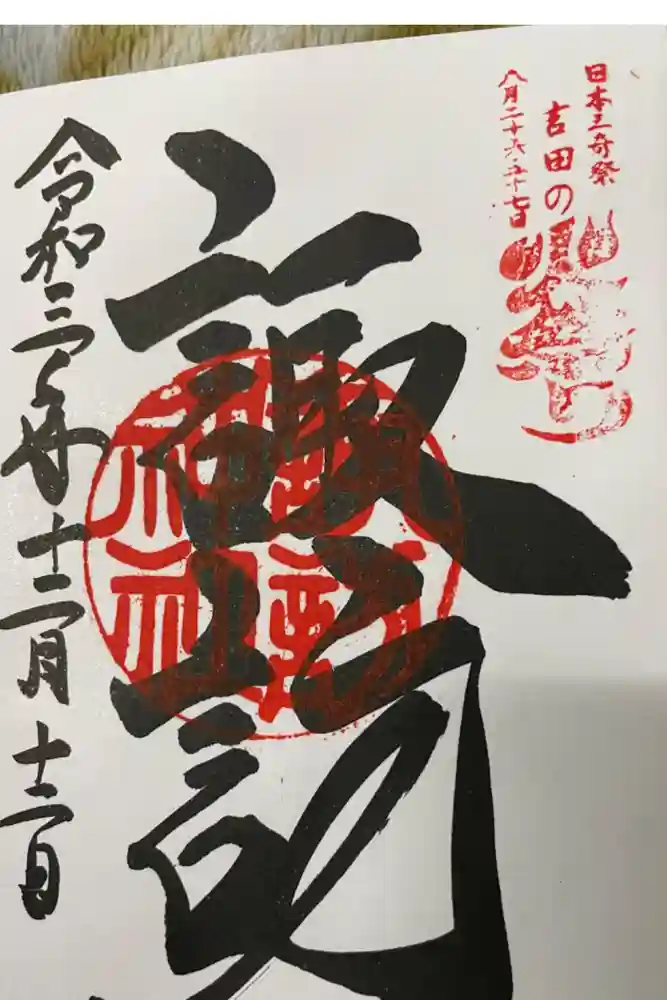 日本三奇祭
吉田の
火祭り
八月二十六・二十七日
諏訪
令和三年十二月十二日